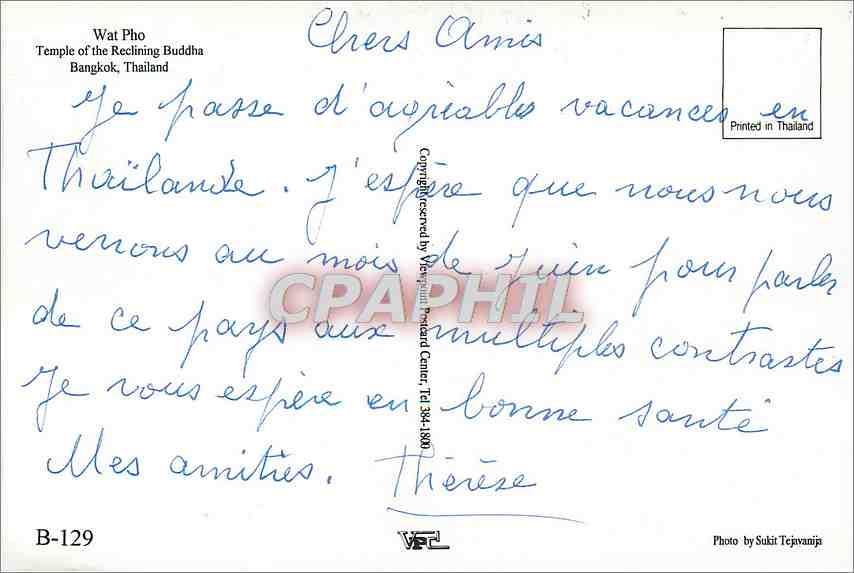 Wat Pho
Temple of the Reclining Buddha
Bangkok, Thailand
Printed in Thailand
Chers Amis
Je passe d'agréables vacances en
Thaïlande. J'espère que nous nous
verrons au mois de Juin pour parler
de ce pays aux multiples contrastes
Je vous espère en bonne santé
Mes amitiés. Thérèse
Copyright reserved by Viewpoint Postcard Center, Tel 384-1800
CPAPHIL
B-129
VPC
Photo by Sukit Tejavanija